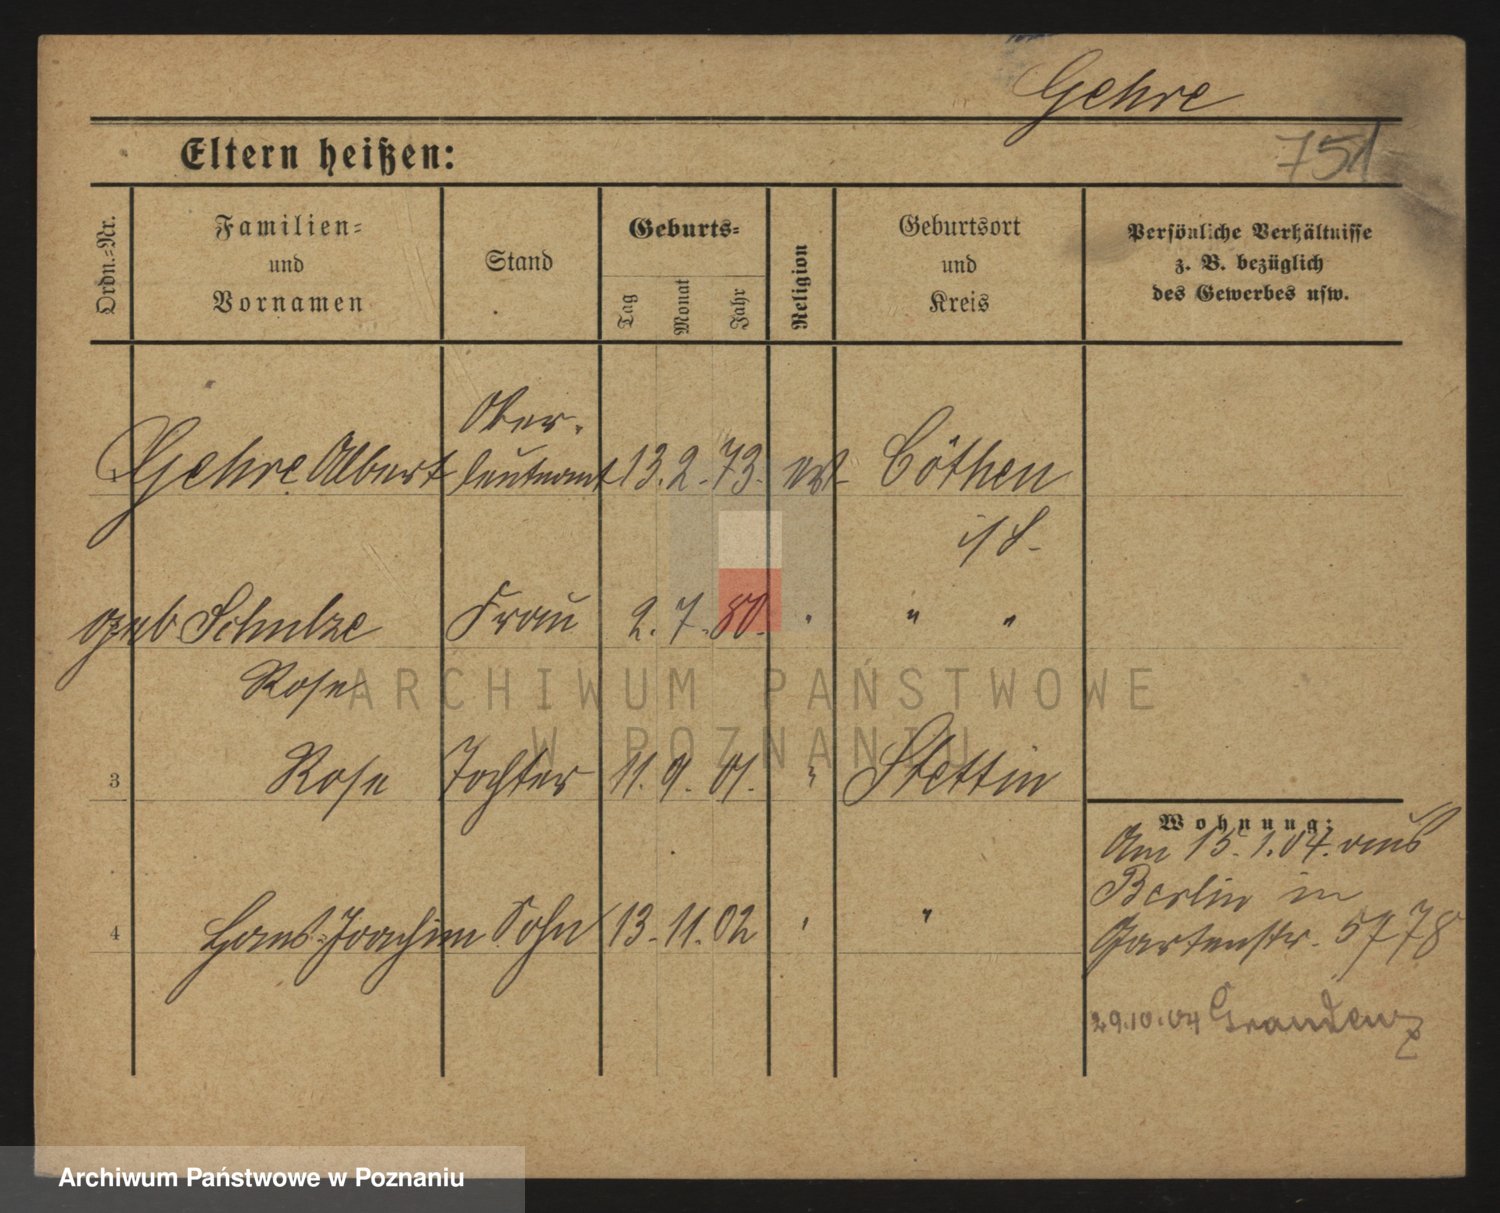 Gehre
751
Eltern heißen:
Ordn.-Nr.
Familien-
und
Vornamen
Stand
Geburts-
Tag
Monat
Jahr
Religion
Geburtsort
und
Kreis
Persönliche Verhältnisse
z. B. bezüglich
des Gewerbes usw.
Ober-
Gehre Albert leutnant 13. 2. 73. Cöthen
geb Schulze Frau 2. 7. 80. " "
Rose
3 Rose Tochter 11. 9. 01. Stettin
4 Hans-Joachim Sohn 13. 11. 02 "
Wohnung:
Am 15. 1. 04. aus
Berlin in
Gartenstr. 5778
29.10.04 Graudenz
ARCHIWUM PAŃSTWOWE
W POZNANIU
Archiwum Państwowe w Poznaniu